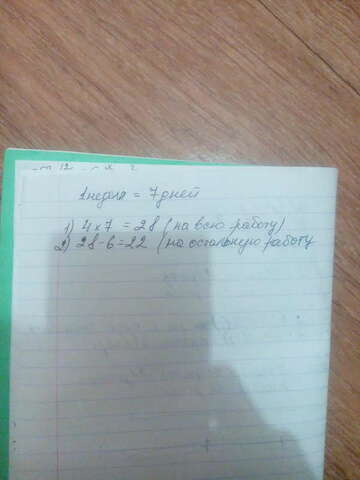 1 неделя = 7 дней
1) 4 х 7 = 28 (на всю работу)
2) 28 - 6 = 22 (на остальную работу